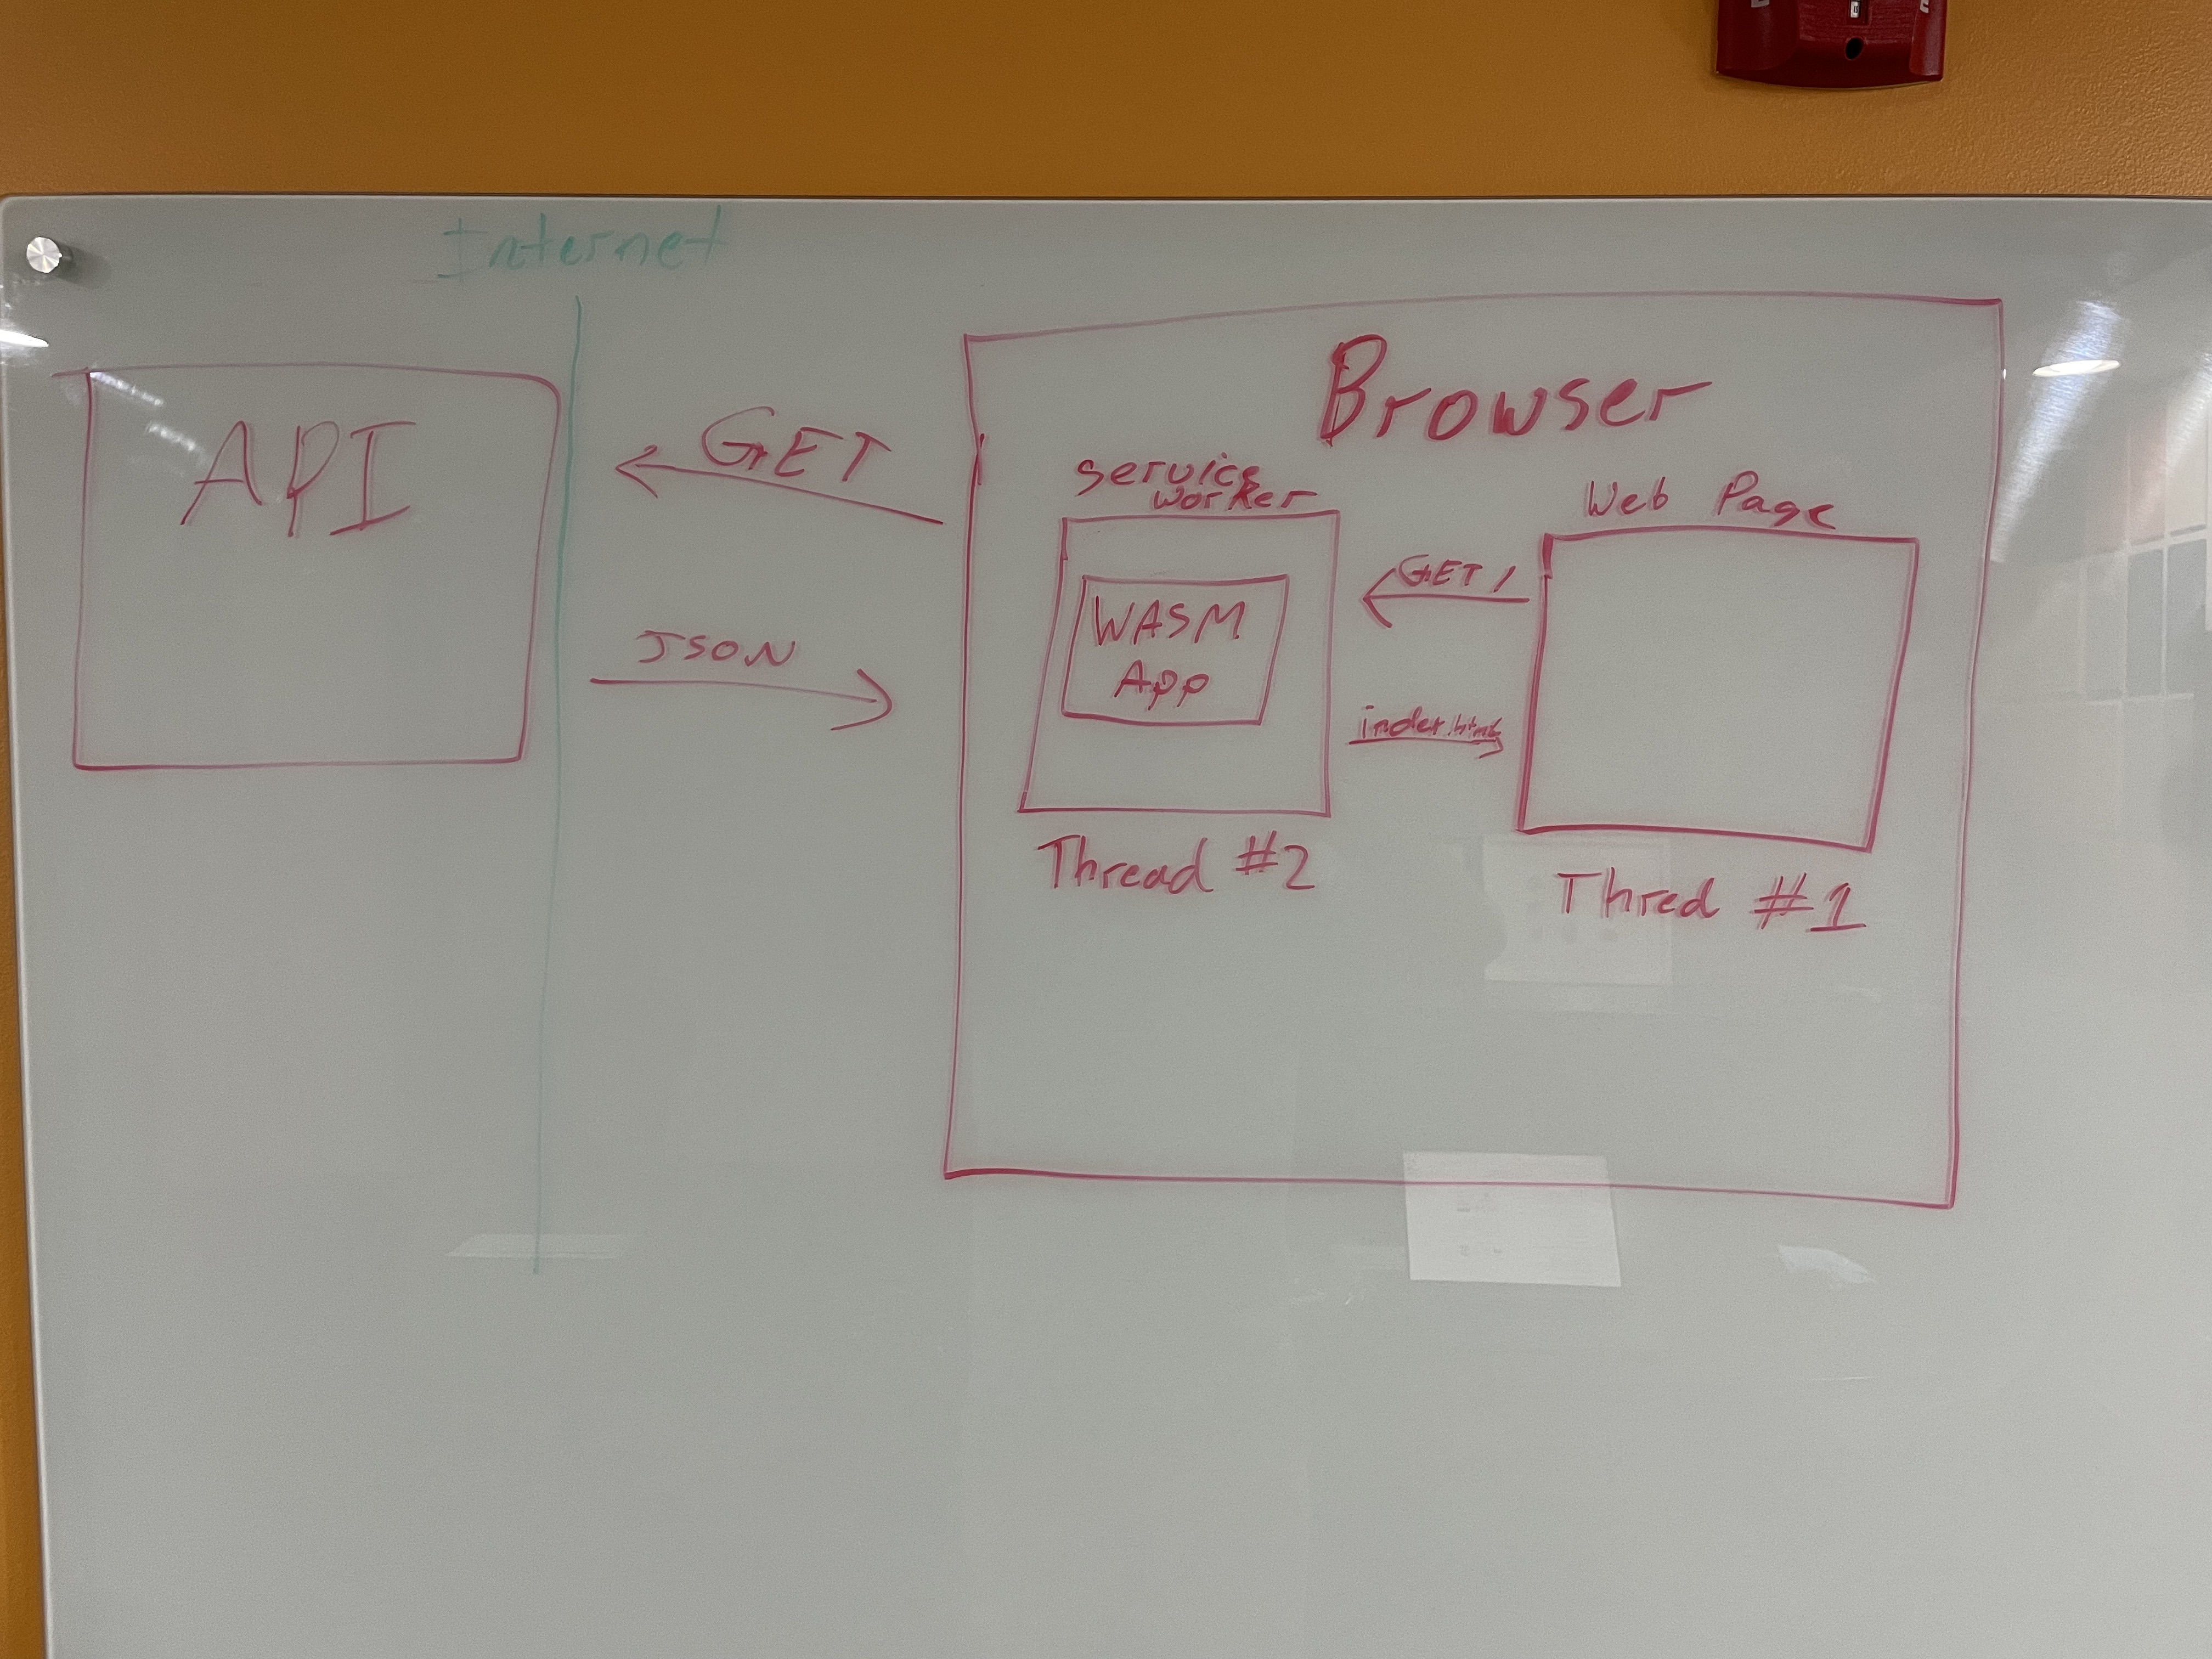 Internet
API
GET
JSON
Browser
service
worker
WASM
App
Thread #2
Web Page
GET /
index.html
Thred #1